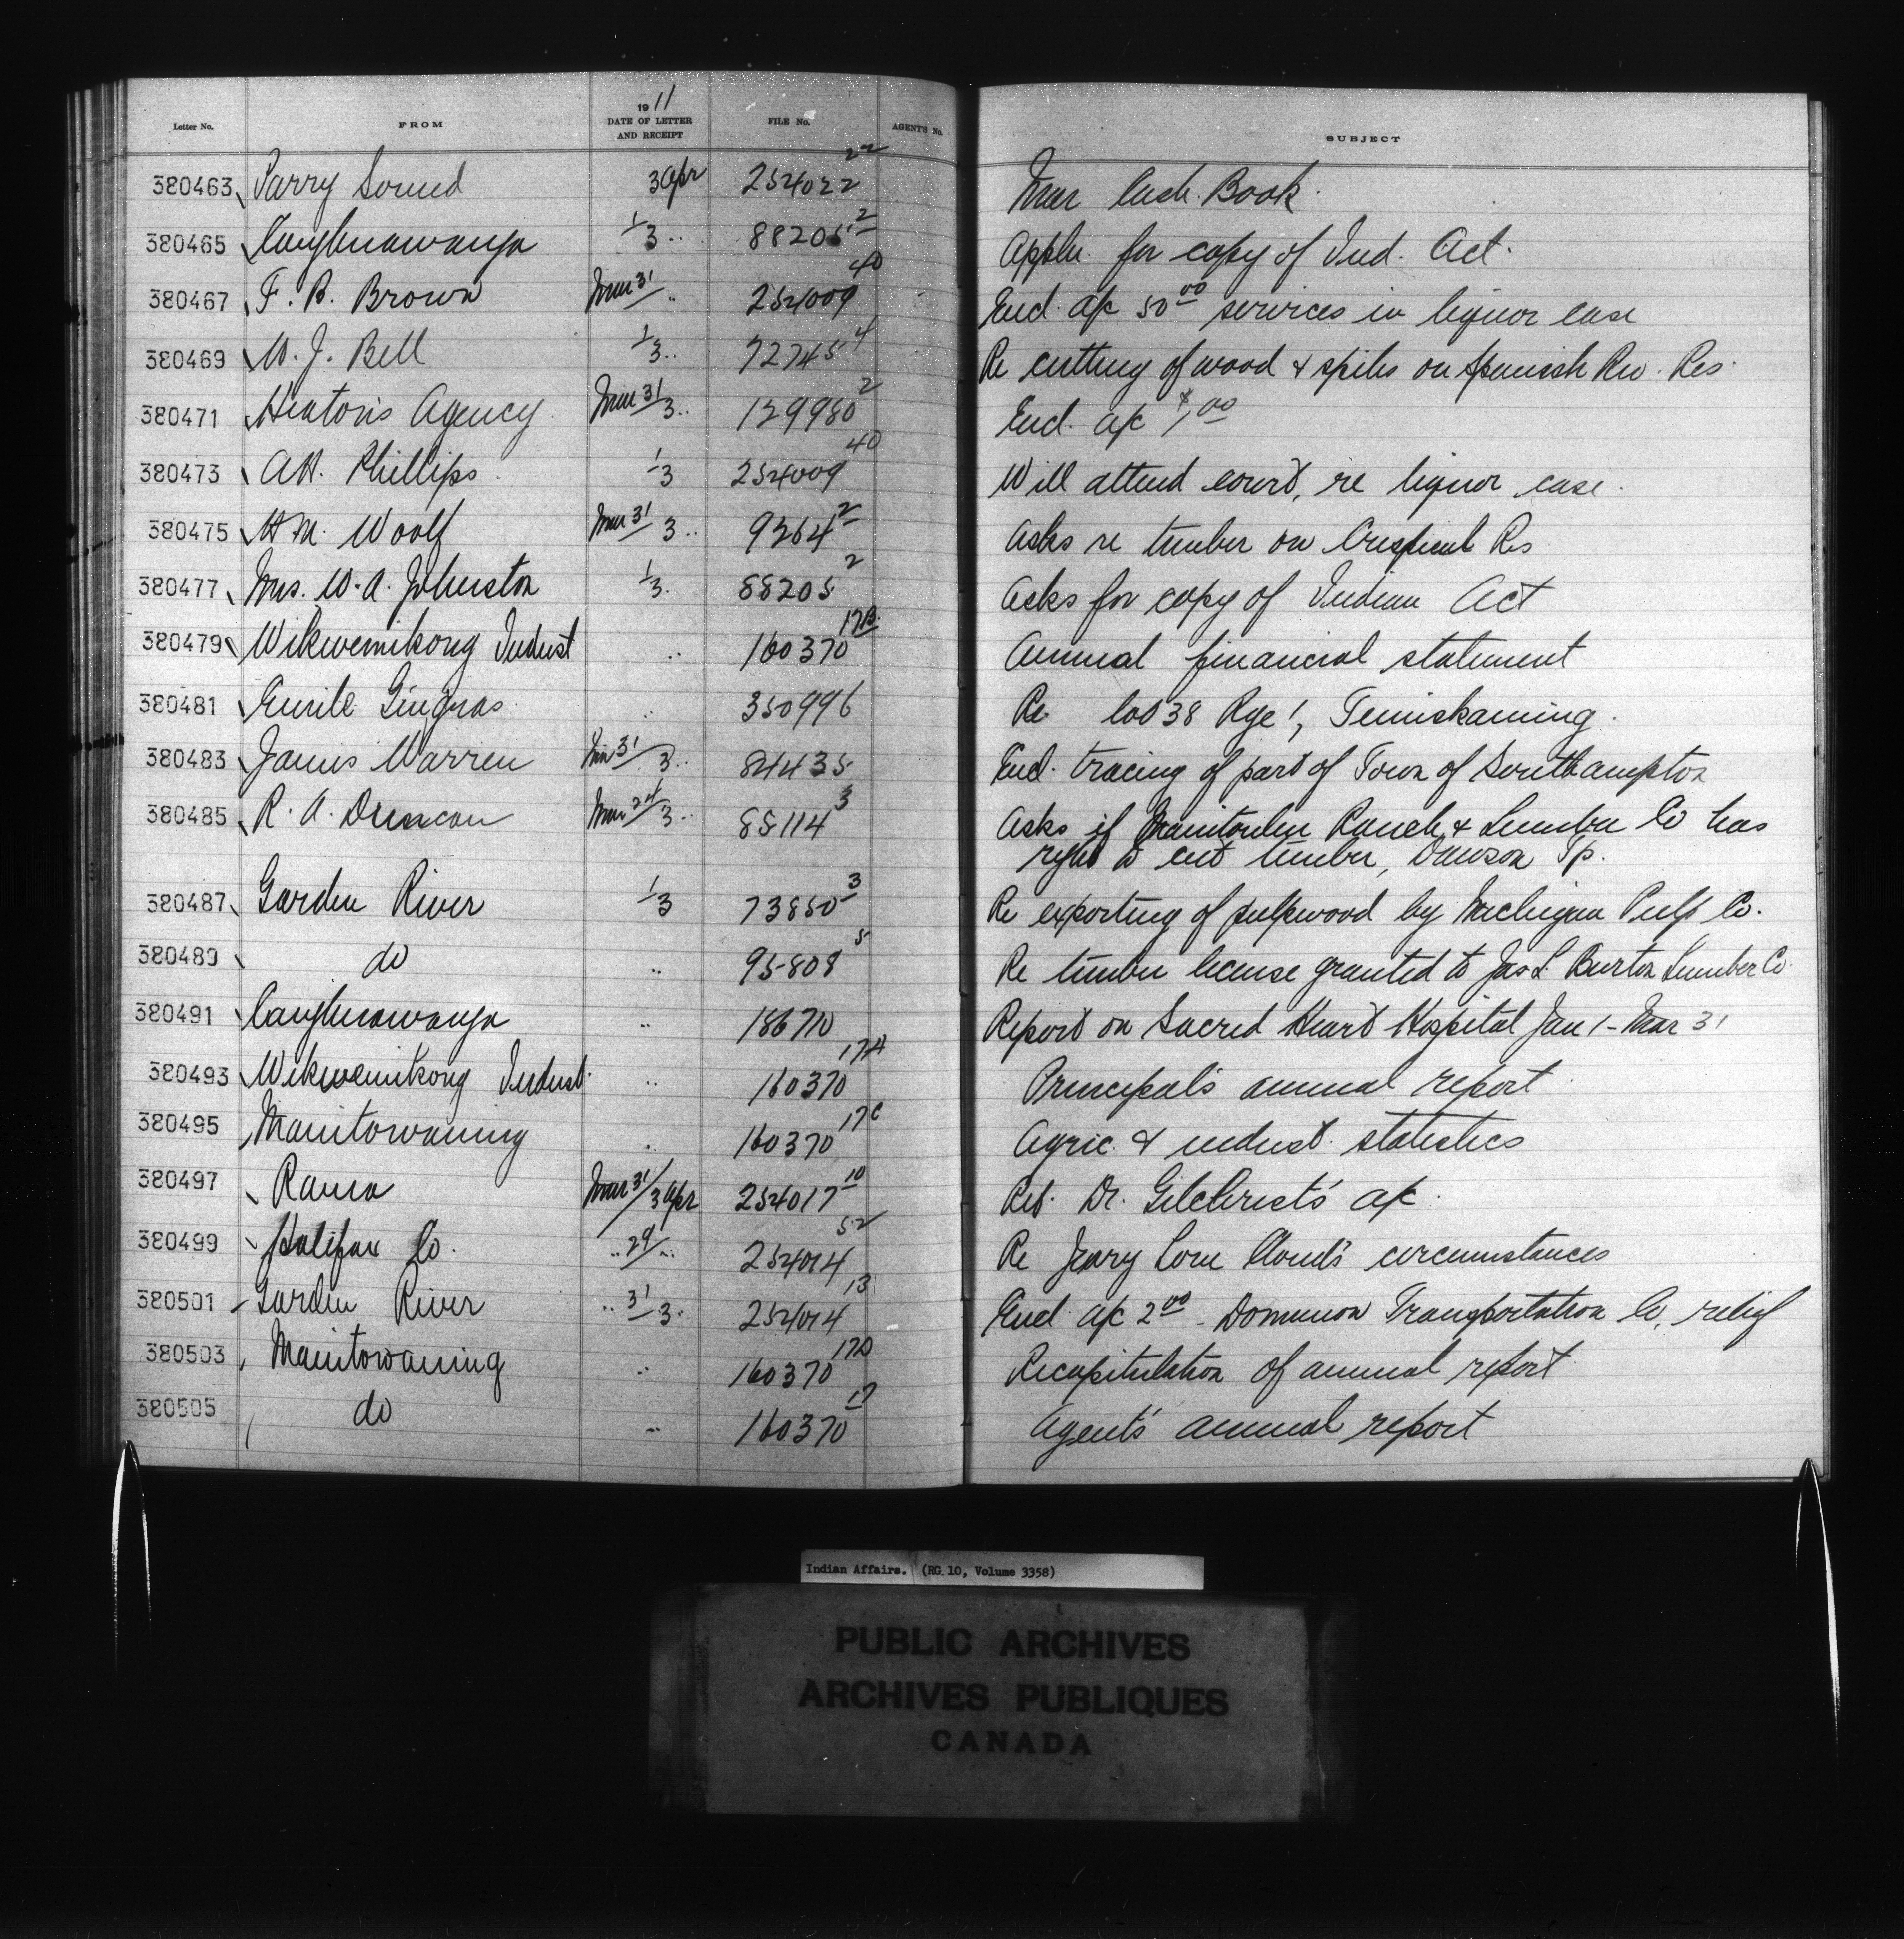 1911
Letter No. FROM DATE OF LETTER AND RECEIPT FILE No. AGENT'S No. SUBJECT
380463 Parry Sound 3 Apr 254022 22 Mar Cash Book
380465 Caughnawauga 1/3 .. 88205 2 Appln. for copy of Ind. Act.
380467 F. B. Brown Mar 31/ .. 254009 40 Encl. a/c 50 00 services in liquor case
380469 W. J. Bell 1/3 .. 72745 4 Re cutting of wood & spiles on Spanish Riv. Res.
380471 Heaton's Agency Mar 31/3 .. 129980 2 Encl. a/c $1,00
380473 A.H. Phillips 1/3 254009 40 Will attend court, re liquor case.
380475 H M. Woolf Mar 31/3 .. 9264 2 Asks re timber on Res
380477 Mrs. W. A. Johnston 1/3. 88205 2 Asks for copy of Indian Act
380479 Wikwemikong Indust .. 160370 17B. Annual financial statement
380481 Emile Gingras .. 350996 Re lot 38 Rge 1, Temiskaming.
380483 James Warren Mar 31/3 .. 84435 Encl. tracing of part of Town of Southampton
380485 R. A. Duncan Mar 24/3 .. 88114 3 Asks if Manitoulin Ranch & Lumber Co has
right to cut timber, Dawson Tp.
380487 Garden River 1/3 73850 3 Re exporting of pulpwood by Michigan Pulp Co.
380489 do .. 95808 5 Re timber license granted to Jas L. Burton Lumber Co.
380491 Caughnawauga .. 186710 Report on Sacred Heart Hospital Jan 1 - Mar 31
380493 Wikwemikong Indust. .. 160370 17A Principal's annual report
380495 Manitowaning .. 160370 17C Agric. & indust. statistics
380497 Rama Mar 31/3 Apr 254017 10 Ret. Dr. Gilchrist's a/c.
380499 Halifax Co. .. 29/.. 254014 52 Re Lone Cloud's circumstances
380501 Garden River .. 31/3. 254014 13 Encl. a/c 2 00 - Dominion Transportation Co, relief
380503 Manitowaning .. 160370 17D Recapitulation of annual report
380505 do .. 160370 17 Agent's annual report
Indian Affairs. (RG 10, Volume 3358)
PUBLIC ARCHIVES
ARCHIVES PUBLIQUES
CANADA